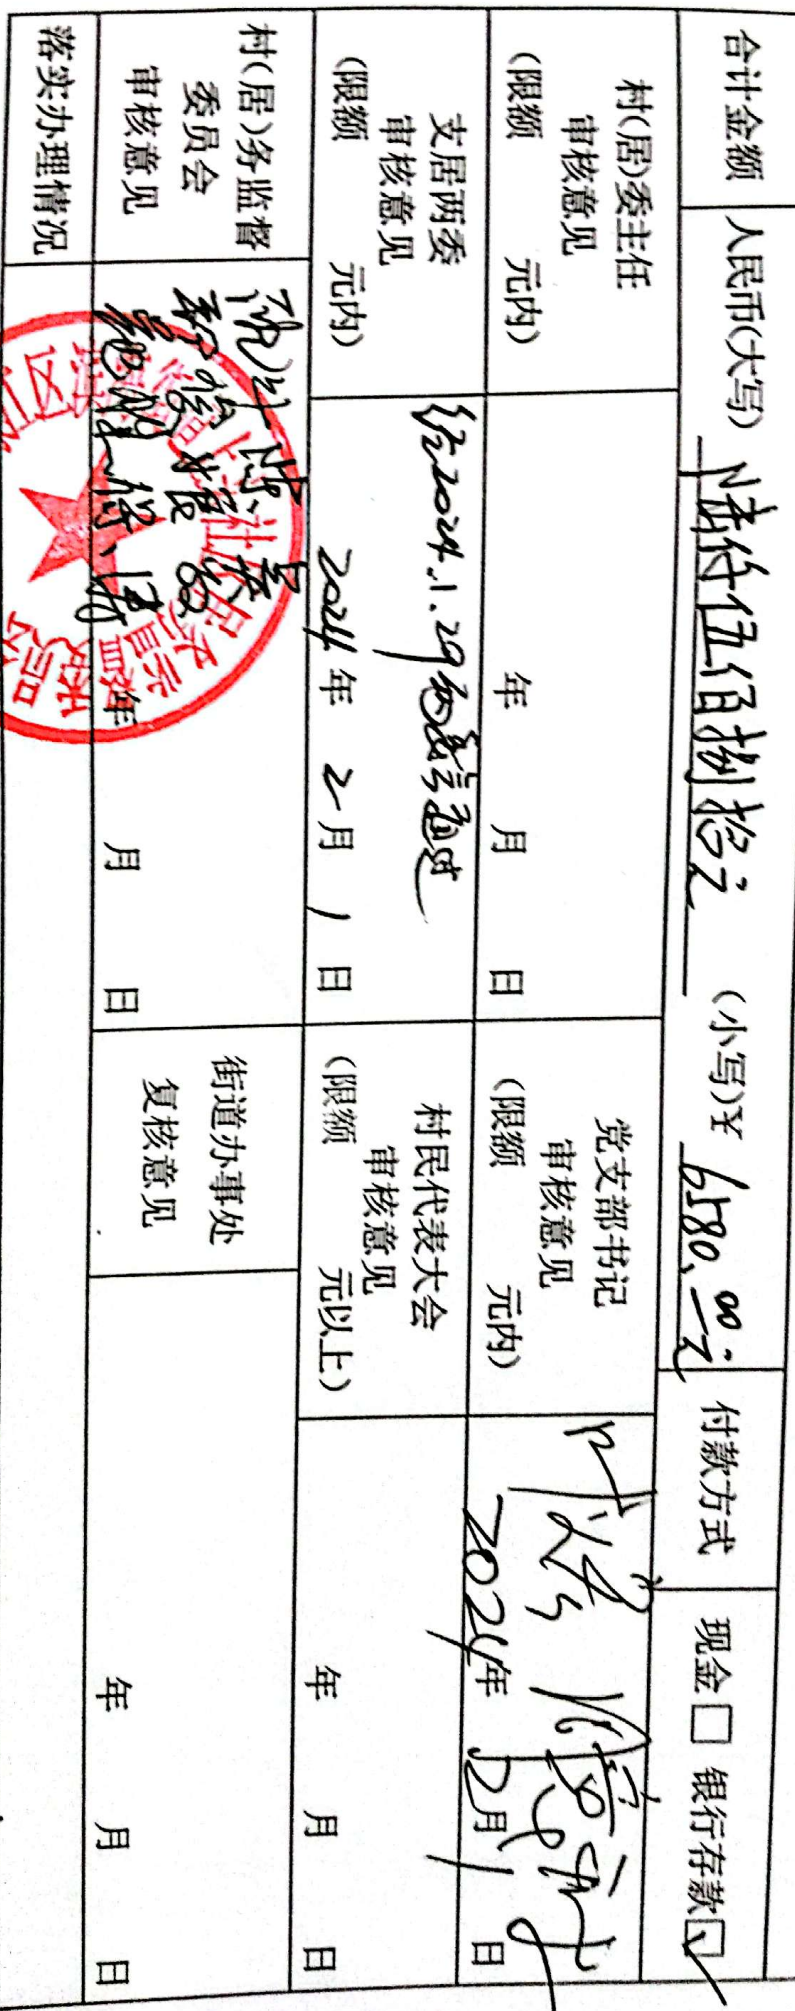 合计金额 人民币(大写) 陆仟伍佰捌拾元 (小写)¥ 6580.00元 付款方式 现金□ 银行存款☑
村(居)委主任
审核意见
(限额 元内)
年 月 日
党支部书记
审核意见
(限额 元内)
2024年 2月 1日
支居两委
审核意见
(限额 元内)
经2024.1.29两委会通过
2024年 2月 1日
村民代表大会
审核意见
(限额 元以上)
年 月 日
村(居)务监督
委员会
审核意见
年 月 日
街道办事处
复核意见
年 月 日
落实办理情况